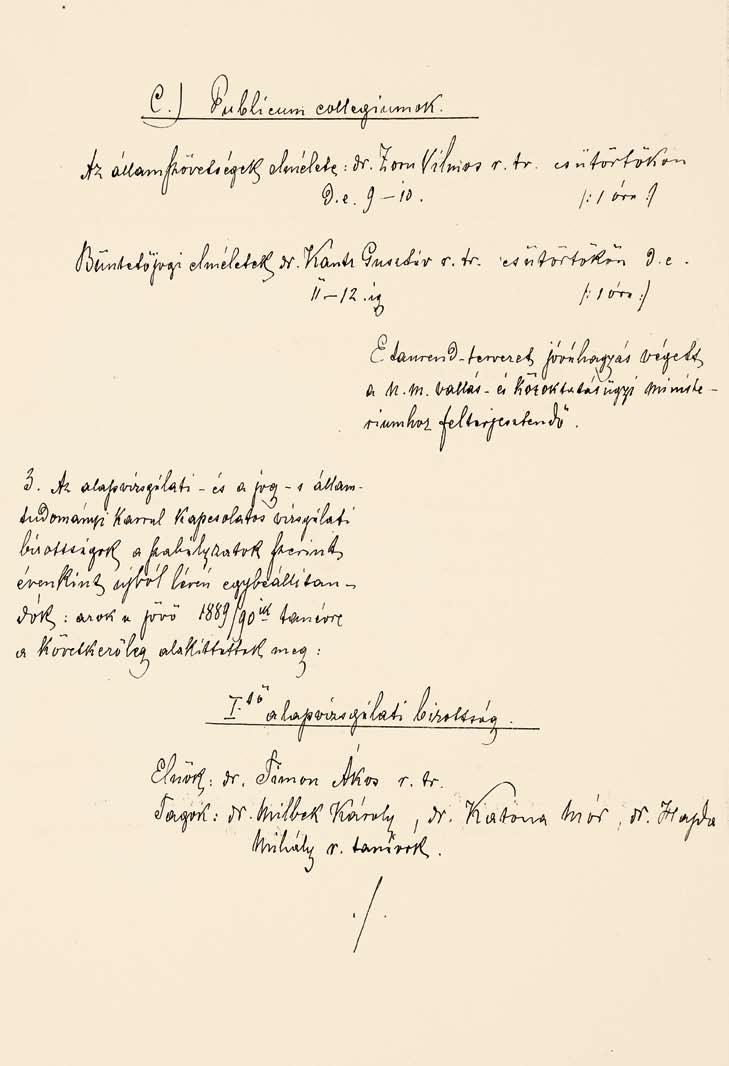 C.) Publicum collegiumok.
Az államszövetségek elmélete: dr. Zorn Vilmos r. tr. csütörtökön
d.e. 9–10. /: 1 óra :/
Büntetőjogi elméletek dr. Kautz Gusztáv r. tr. csütörtökön d.e.
11–12.ig /: 1 óra :/
E tanrend-tervezet jóváhagyás végett
a n.m. vallás- és közoktatásügyi ministe-
riumhoz felterjesztendő.
3. Az alapvizsgálati- és a jog- s állam-
tudományi karral kapcsolatos vizsgálati
bizottságok a szabályzatok szerint
évenkint újból lévén egybeállítan-
dók: azok a jövő 1889/90ik tanévre
a következőleg alakíttattak meg:
I.ső alapvizsgálati bizottság.
Elnök: dr. Timon Ákos r. tr.
Tagok: dr. Bilbek Károly, dr. Katona Mór, dr. Hajda
Mihály r. tanárok.
./.